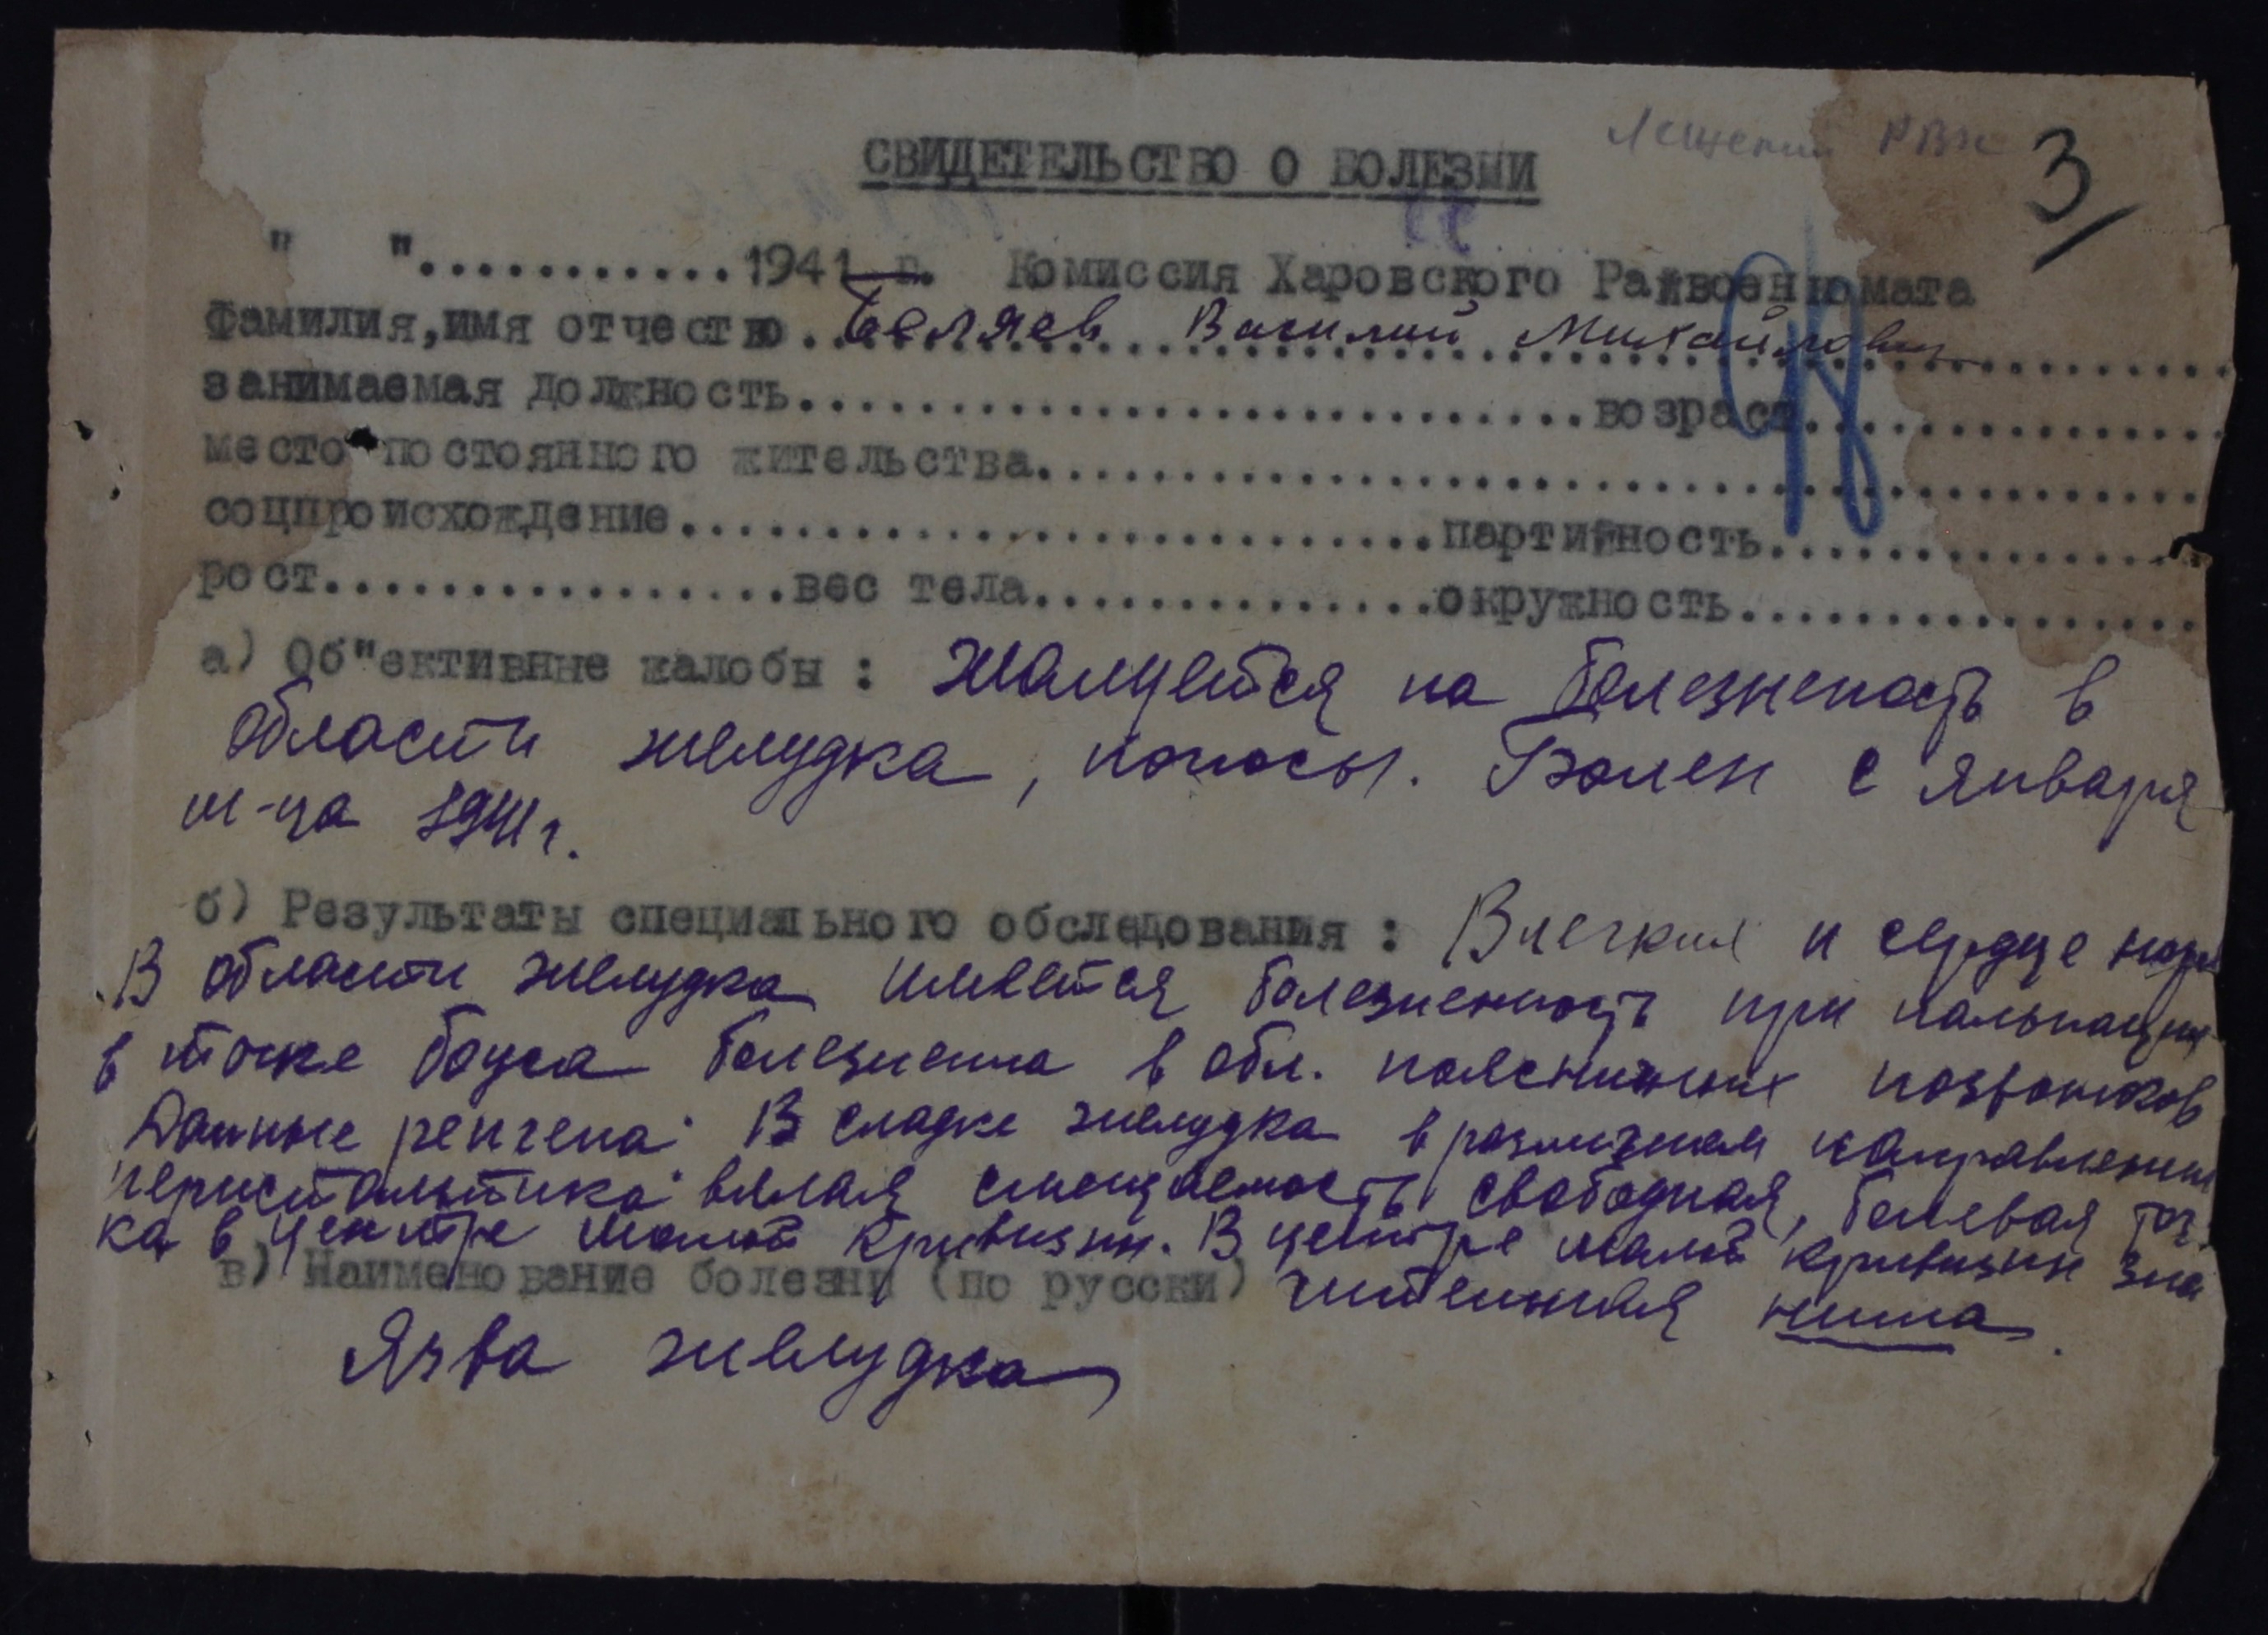 РВК 3
СВИДЕТЕЛЬСТВО О БОЛЕЗНИ
" "............1941 г. Комиссия Харовского Райвоенкомата
Фамилия,имя отчество.Беляев Василий Михайлович
занимаемая должность..............................возраст................
место постоянного жительства.............................................
соцпроисхождение.............................партийность.................
рост..................вес тела................окружность..................
а) Об"ективные жалобы : Жалуется на болезненость в
области желудка, поносы. Болен с января
м-ца 1941 г.
б) Результаты специального обследования : В легких и сердце норм
В области желудка имеется болезненность при пальпации
в точке боуса болезнена в обл. поясничных позвонков
Данные ренгена: В сладке желудка в различном направлении
перистальтика вялая смещаемость свободная, болевая точ-
ка в центре малой кривизны. В центре малой кривизны зна
в) Наименование болезни (по русски) чительная ниша.
Язва желудка